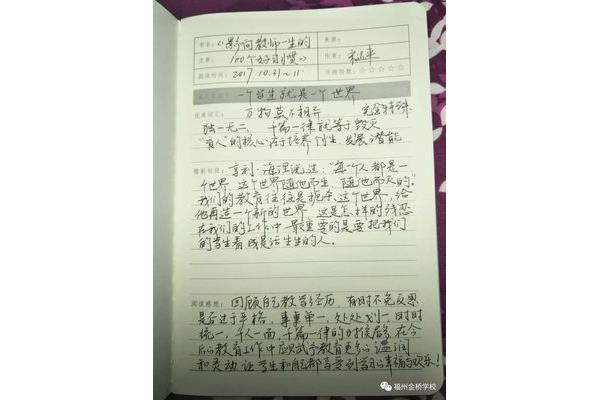 书名：《影响教师一生的
文章：100个好习惯》
来源：
作者：
阅读时间：2017.10.31~11.
推荐指数：☆☆☆☆☆
一个学生就是一个世界
佳美词汇：万物莫不相异 完全特殊
独一无二、千篇一律就等于毁灭
"育人"的核心在于培养个性，发展潜能
精彩句段：亨利·海涅说过："每个人都是一
个世界，这个世界随他而生，随他而灭的。"
我们的教育往往是扼杀这个世界，给
他再造一个新的世界，这是怎样的
在我们的工作中最重要的是要把我们
的学生看成是活生生的人。
阅读感想：回顾自己教学经历，有时不免反思
是否过于严格，事事单一，处处划一，时时
统一，千人一面，千篇一律的时候居多，在今
后的教育工作中应赋予教育更多的温润
和灵动，让学生和自己都享受到学习的幸福与欢乐！
福州金桥学校